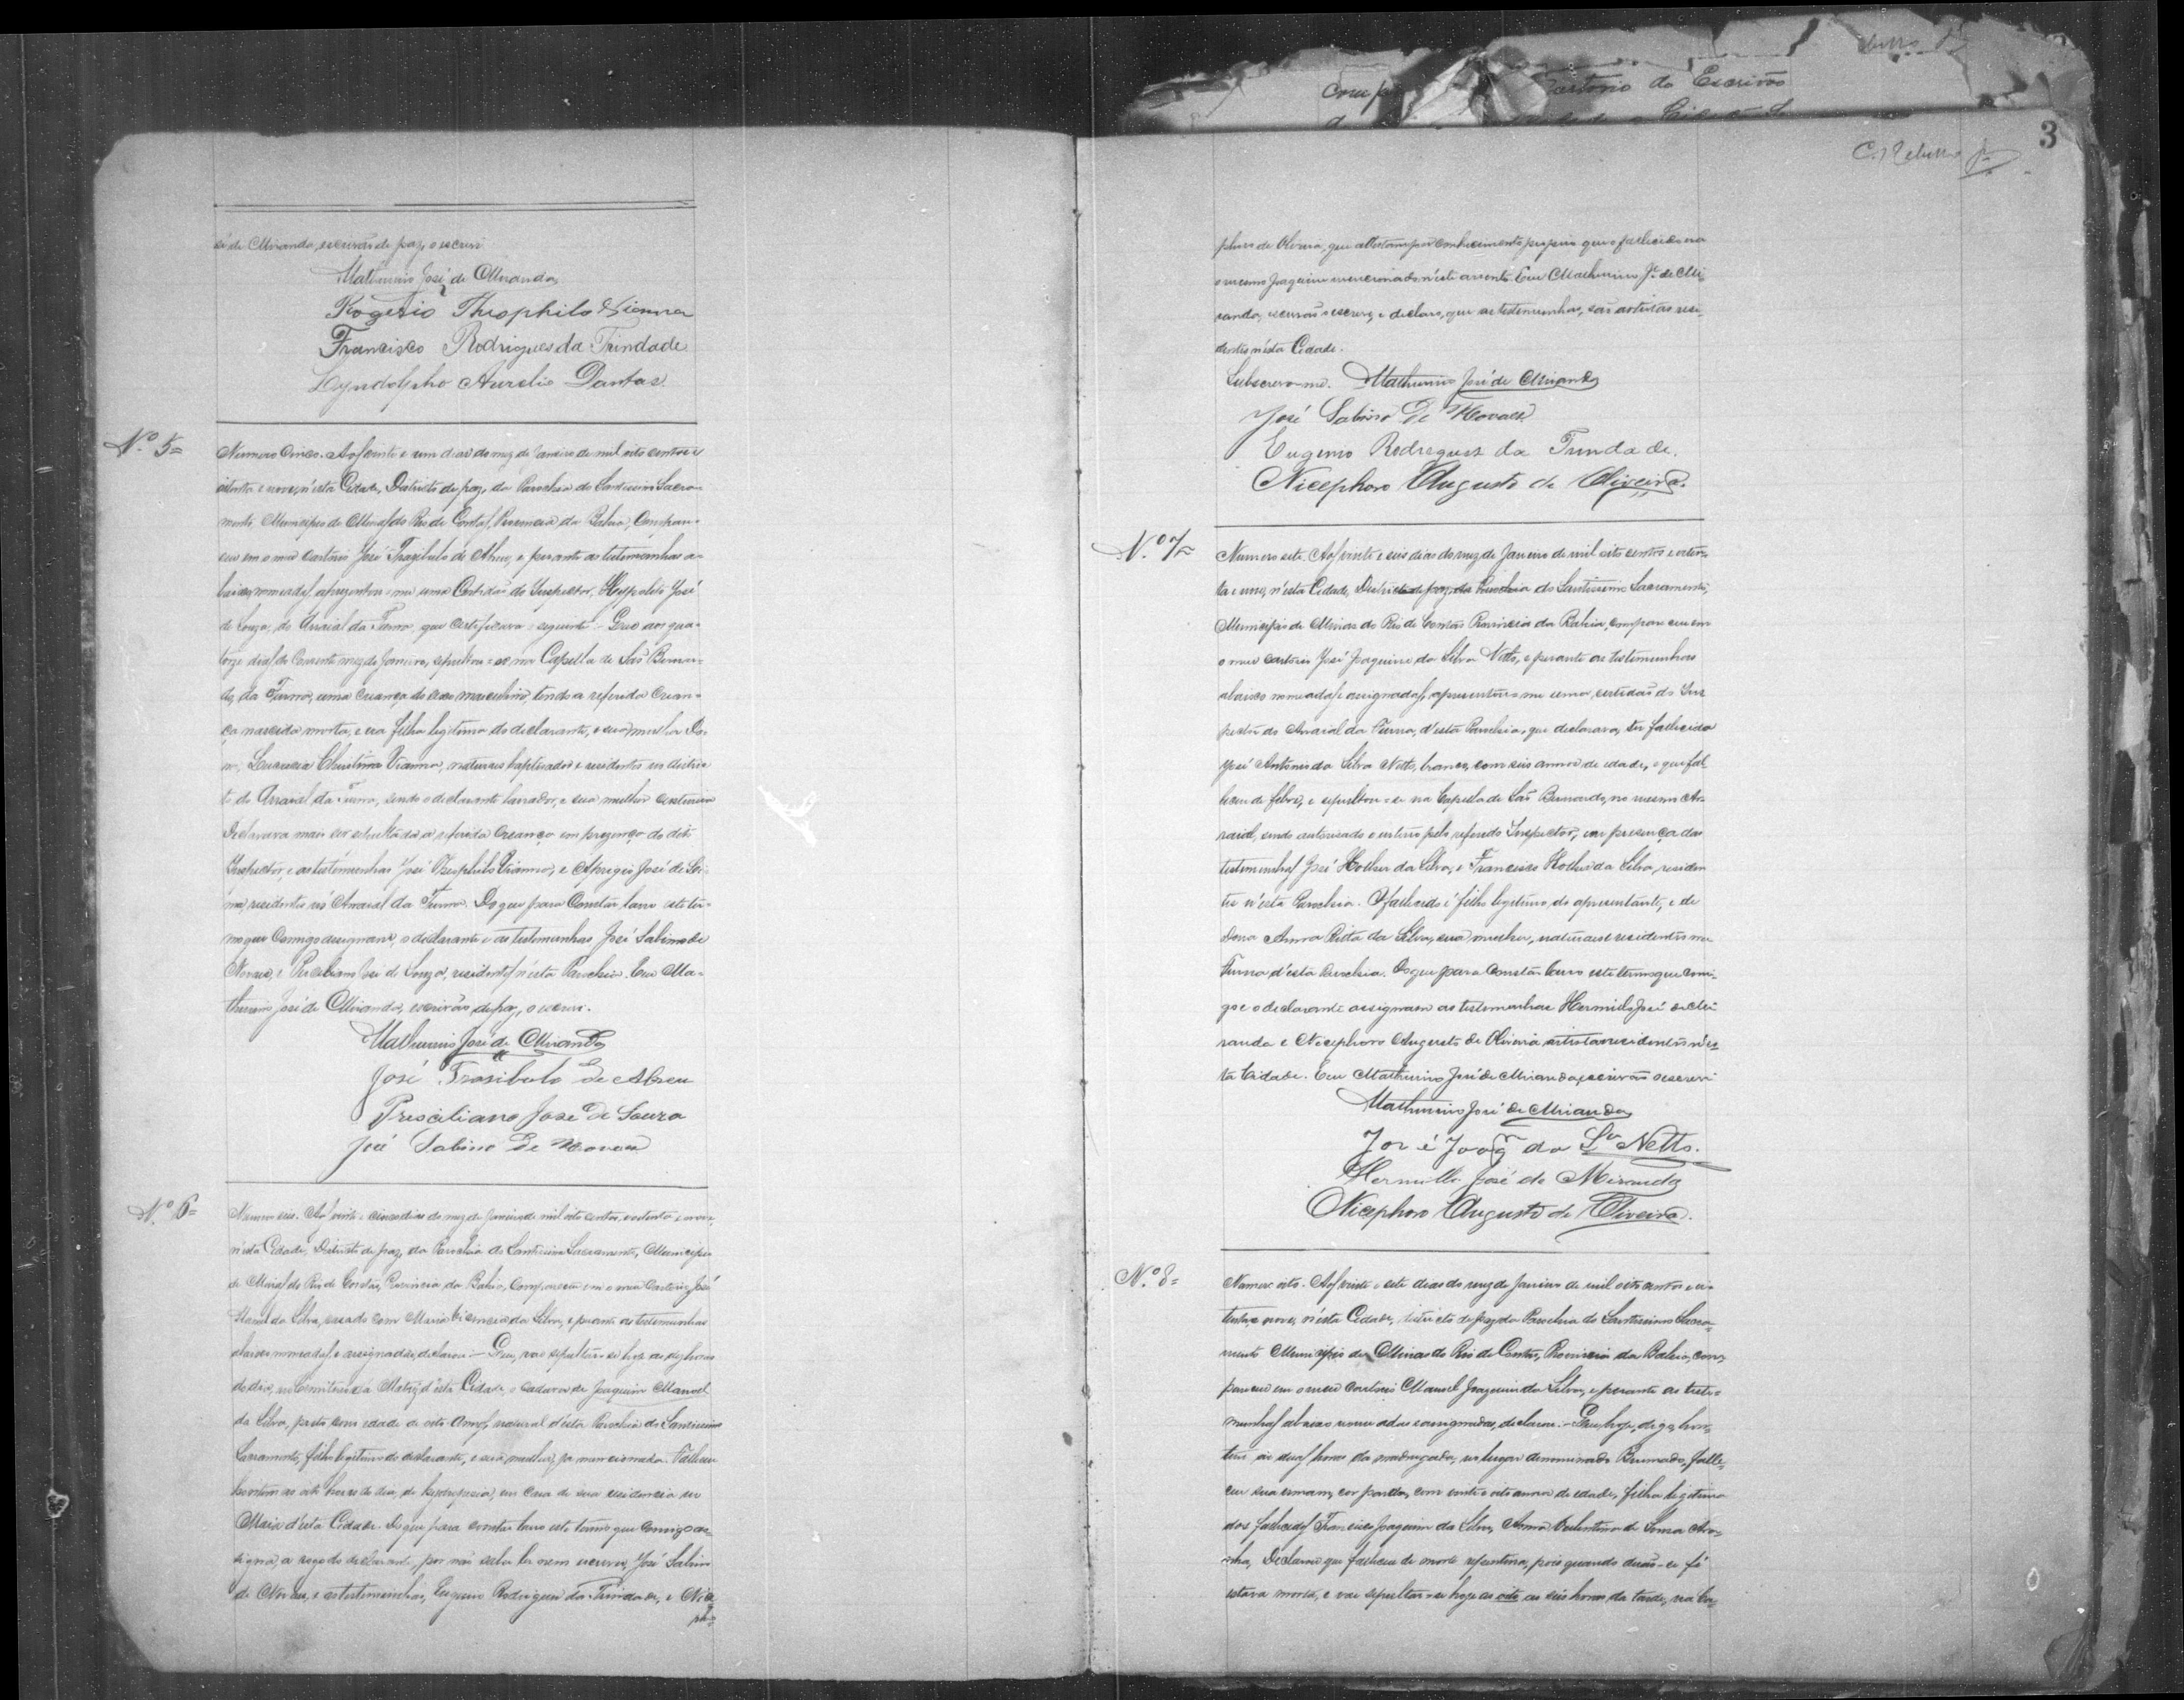 sé de Miranda, escrivão de paz, o escrevi
Mathurino José de Miranda
Rogerio Theophilo Vianna
Francisco Rodrigues da Trindade
Lyndolpho Aurelio Dantas
Nº 5=
Numero Cinco. Aos vinte e um dias do mez de Janeiro de mil oito centos e
oitenta e nove, n'esta Cidade, Districto de paz, da Parochia do Santissimo Sacra-
mento Municipio de Minas do Rio de Contas, Provincia da Bahia, Compare-
ceu em o meu cartorio José Trazibulo de Abreu, e perante as testemunhas a-
baixo nomeadas, aprezentou-me uma Certidão do Inspector, Hypolito José
de Souza, do Arraial da Furna, que certificava o seguinte - Que aos qua-
torze dias do Corrente mez de Janeiro, sepultou-se na Capella de São Bernar-
do, da Furna, uma criança do sexo masculino, tendo a referida Crian-
ça nascida morta, e era filha legitima do declarante, e sua mulher Do-
na Lucrecia Christina Vianna, naturaes baptizados e residentes no distric-
to do Arraial da Furna, sendo o declarante lavrador, e sua mulher costureira
Declarava mais ser sepultada a referida Creança em prezença do dito
Inspector, e as testemunhas José Theophilo Vianna, e Aprigio José de
residentes no Arraial da Furna. Do que para Constar lavro este ter-
mo que Comigo assignam o declarante e as testemunhas José Sabino de
Novaes, e Presciliano José de Souza, residentes n'esta Parochia. Eu Ma-
thurino José de Miranda, escrivão de paz, o escrevi.
Mathurino José de Miranda
José Trasibulo de Abreu
Presciliano José de Souza
José Sabino de Novaes
Nº 6=
Numero seis. Aos vinte e cinco dias do mez de Janeiro de mil oito centos e oitenta e nove
n'esta Cidade, Districto de paz, da Parochia do Santissimo Sacramento, Municipio
de Minas do Rio de Contas, Provincia da Bahia, Compareceu em o meu Cartorio, José
Manoel da Silva, casado com Maria da Silva, e perante as testemunhas
abaixo nomeadas e assignadas, declarou: - Que, vae sepultar-se hoje as dez horas
do dia, no Cemiterio da Matriz d'esta Cidade, o Cadaver de Joaquim Manoel
da Silva, preto com idade de oito annos, natural d'esta Parochia do Santissimo
Sacramento, filho legitimo do declarante, e sua mulher, ja mencionada. Falleceu
hontem as oito horas do dia, de hydropesia, em Casa de sua residencia no
d'esta Cidade. Do que para constar lavro este termo que Comigo as-
signa, a rogo do declarante, por não saber ler nem escrever, José Sabino
de Novaes, e as testemunhas, Eugenio Rodrigues da Trindade, e Nice-
pho-
3
phoro de Oliveira, que attestam por conhecimento proprio que o fallecido era
o mesmo Joaquim mencionado n'este assento. Eu Mathurino Jé de Mi-
randa, escrivão o escrevi, e declaro, que as testemunhas, são artistas resi-
dentes n'esta Cidade.
Subscrevo-me. Mathurino José de Miranda
José Sabino de Novaes
Eugenio Rodrigues da Trindade.
Nicephoro Augusto de Oliveira.
Nº 7=
Numero sete. Aos vinte e seis dias do mez de Janeiro de mil oito centos e oiten-
ta e nove, n'esta Cidade, Districto de paz, da Parochia do Santissimo Sacramento,
Municipio de Minas do Rio de Contas Provincia da Bahia, compareceu em
o meu cartorio José Joaquim da Silva Netto, e perante as testemunhas
abaixo nomeadas e assignadas, apresentou-me uma certidão do Ins-
pector do Arraial da Furna, d'esta Parochia, que declarava, ter fallecido
José Antonio da Silva Netto, branco, com seis annos de idade, e que fal-
leceu de febre, e sepultou-se na Capella de São Bernardo, no mesmo Ar-
raial, sendo autorizado o enterro pelo referido Inspector, em presença das
testemunhas José da Silva, e Francisco da Silva, residen-
tes n'esta Parochia. O fallecido é filho legitimo do apresentante, e de
Dona Anna Ritta da Silva, sua mulher, naturaes e residentes na
Furna d'esta Parochia. Do que para Constar lavro este termo que comi-
go e o declarante assignam as testemunhas Hermillo José de Mi-
randa e Nicephoro Augusto de Oliveira artistas residentes n'es-
ta Cidade. Eu Mathurino José de Miranda, escrivão o escrevi
Mathurino José de Miranda
José Joaqm da Sa Netto.
Hermillo José de Miranda
Nicephoro Augusto de Oliveira.
Nº 8=
Numero oito. Aos vinte e sete dias do mez de Janeiro de mil oito centos e oi-
tenta, e nove, n'esta Cidade, districto de paz da Parochia do Santissimo Sacra-
mento Municipio de Minas do Rio de Contas, Provincia da Bahia, com-
pareceu em o meu cartorio Manoel Joaquim da Silva, e perante as teste-
munhas abaixo nomeadas e assignadas, declarou: - Que, hoje, digo, hon-
tem as duas horas da madrugada, no lugar denominado Brumado, falle-
ceu sua irmam, cor parda, com vinte e oito annos de edade, filha legitima
dos fallecidos Francisco Joaquim da Silva, Anna de Souza
Declarou que falleceu de morte repentina, pois quando já
estava morta, e vae sepultar-se hoje as oito as seis horas da tarde, na Ca-